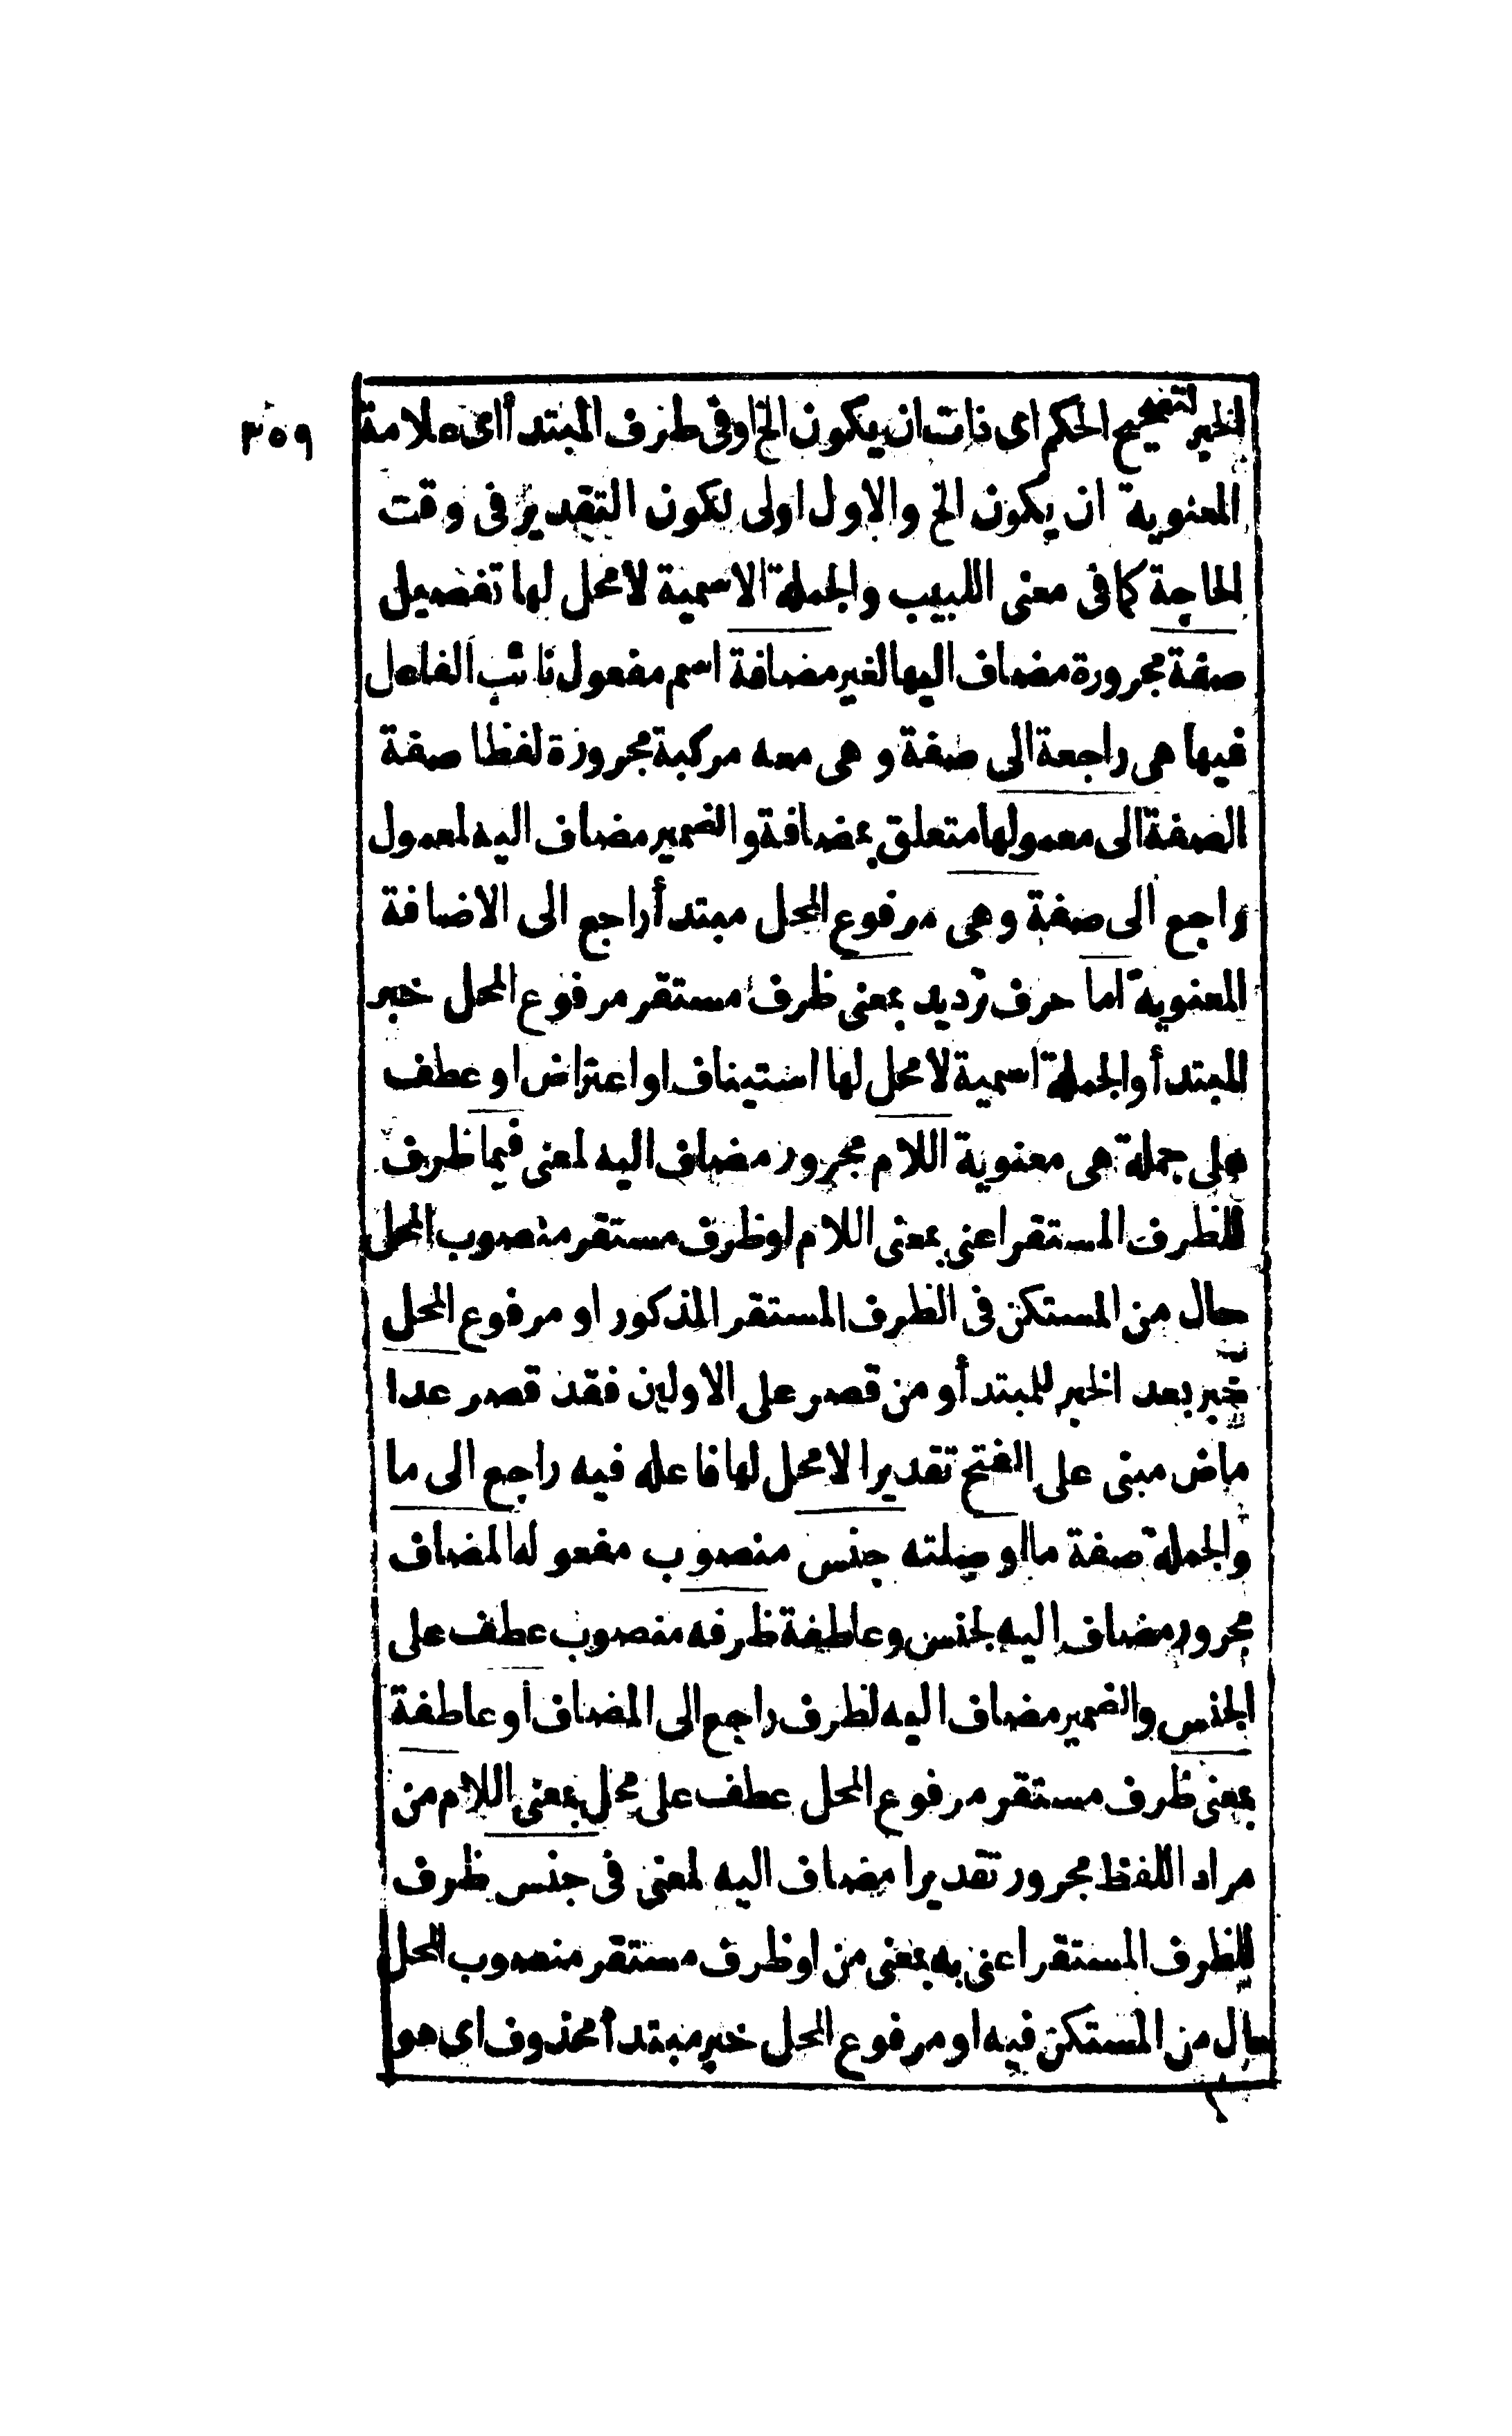 ٣٥٩
الخبر لتصحيح الحكم اى ذات ان يكون الخ او فى طرف المبتدأ اى علامة
المعنوية ان يكون الخ والاول اولى لكون التقدير فى وقت
الحاجة كما فى معنى اللبيب والجملة الاسمية لا محل لها تفصيل
صفة مجرورة مضاف اليها لغير مضافة اسم مفعول نائب الفاعل
فيها هى راجعة الى صفة و هى معه مركبة مجرورة لفظا صفة
الصفة الى معمولها متعلق بمضافة والضمير مضاف اليه لمعمول
راجع الى صفة وهى مرفوع المحل مبتدأ راجع الى الاضافة
المعنوية اما حرف ترديد بمعنى ظرف مستقر مرفوع المحل خبر
المبتدأ والجملة اسمية لا محل لها استيناف او اعتراض او عطف
على جملة هى معنوية اللام مجرور مضاف اليه لمعنى فيما ظرف
للظرف المستقر اعنى بمعنى اللام او ظرف مستقر منصوب المحل
حال من المستكن فى الظرف المستقر المذكور او مرفوع المحل
خبر بعد الخبر للمبتدأ و من قصر على الاولين فقد قصر عدا
ماض مبنى على الفتح تقديرا لا محل لها فاعله فيه راجع الى ما
والجملة صفة ما او صلته جنس منصوب مفعوله المضاف
مجرور مضاف اليه لجنس وعاطفة ظرفه منصوب عطف على
الجنس والضمير مضاف اليه لظرف راجع الى المضاف او عاطفة
بمعنى ظرف مستقر مرفوع المحل عطف على محل بمعنى اللام من
مراد اللفظ مجرور تقديرا مضاف اليه لمعنى فى جنس ظرف
للظرف المستقر اعنى به بمعنى من او ظرف مستقر منصوب المحل
حال من المستكن فيه او مرفوع المحل خبر مبتدأ محذوف اى هو